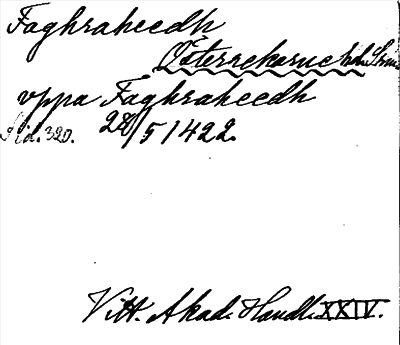 Faghraheedh
Österrekarne hd Srm
uppa Faghraheedh
Sid. 320. 28/5 1422.
Vitt. Akad. Handl. XXIV.